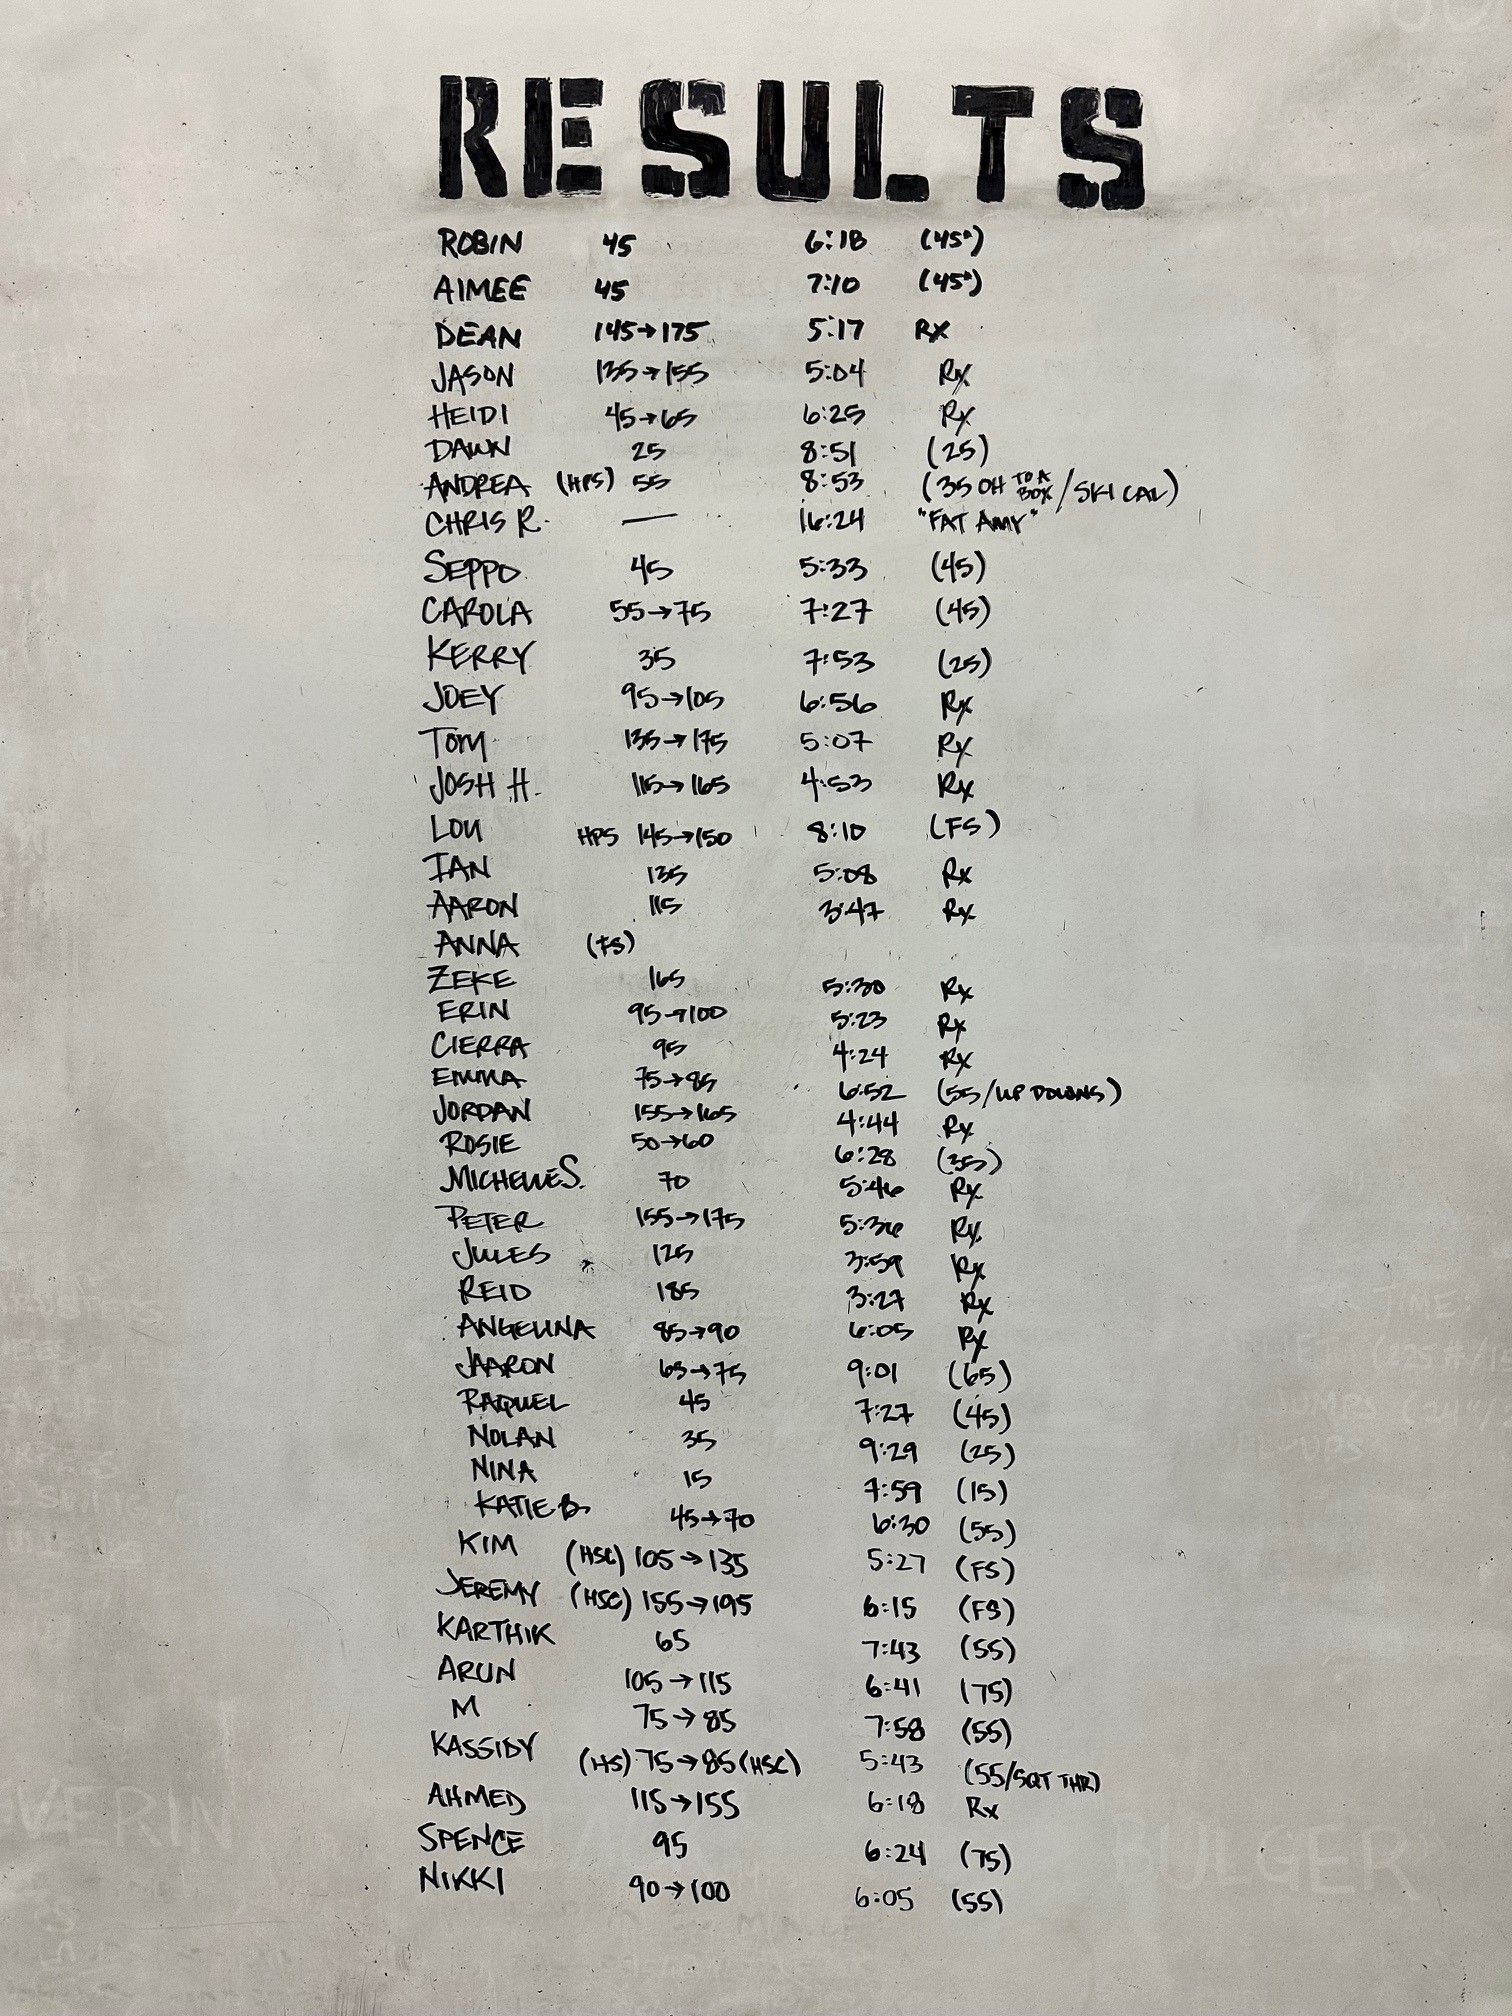 RESULTS
ROBIN 45 6:18 (45*)
AIMEE 45 7:10 (45*)
DEAN 145→175 5:17 RX
JASON 135→155 5:04 Rx
HEIDI 45→65 6:25 Rx
DAWN 25 8:51 (25)
ANDREA (HPS) 55 8:53 (35 OH TO A BOX/SKI CAL)
CHRIS R. — 16:24 "FAT AMY"
SEPPO 45 5:33 (45)
CAROLA 55→75 7:27 (45)
KERRY 35 7:53 (25)
JOEY 95→105 6:56 Rx
TOM 135→175 5:07 Rx
JOSH H. 115→165 4:53 Rx
LOU HPS 145→150 8:10 (FS)
IAN 135 5:08 Rx
AARON 115 3:47 Rx
ANNA (FS)
ZEKE 165 5:30 Rx
ERIN 95→100 5:23 Rx
CIERRA 95 4:24 Rx
EMMA 75→85 6:52 (55/UP DOWNS)
JORDAN 155→165 4:44 Rx
ROSIE 50→60 6:28 (35)
MICHELLE S. 70 5:46 Rx
PETER 155→175 5:36 Rx
JULES 125 3:59 Rx
REID 185 3:27 Rx
ANGELINA 85→90 6:05 Rx
JAARON 65→75 9:01 (65)
RAQUEL 45 7:27 (45)
NOLAN 35 9:29 (25)
NINA 15 7:59 (15)
KATIE B. 45→70 6:30 (55)
KIM (HSC) 105→135 5:27 (FS)
JEREMY (HSC) 155→195 6:15 (FS)
KARTHIK 65 7:43 (55)
ARUN 105→115 6:41 (75)
M 75→85 7:58 (55)
KASSIDY (HS) 75→85 (HSC) 5:43 (55/SQT THR)
AHMED 115→155 6:18 Rx
SPENCE 95 6:24 (75)
NIKKI 90→100 6:05 (55)